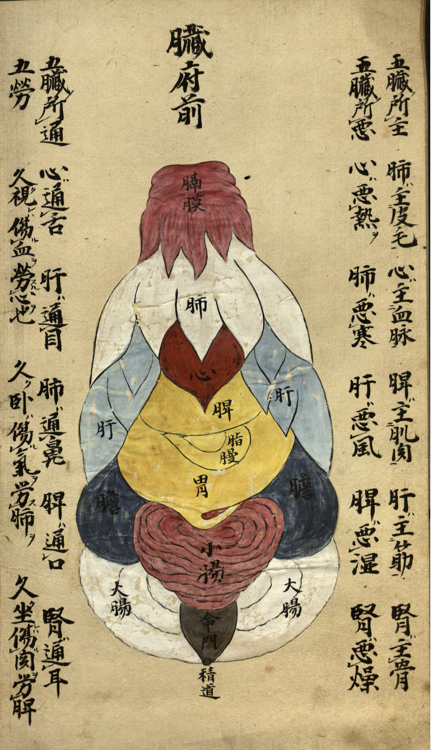 五臟所主 肺主皮毛 心主血脉 脾主肌肉 肝主筋 腎主骨
五臟所悪 心悪熱ヲ 肺悪寒 肝悪風 脾悪湿 腎悪燥
臟府前
膈膜
肺
心
脾
肝
肝
脂幔
胃
膽
膽
小腸
大腸
大腸
命門
精道
五臟所通 心通舌 肝通目 肺通鼻 脾通口 腎通耳
五勞 久視傷血勞心也 久卧傷氣勞肺 久坐傷肉勞脾